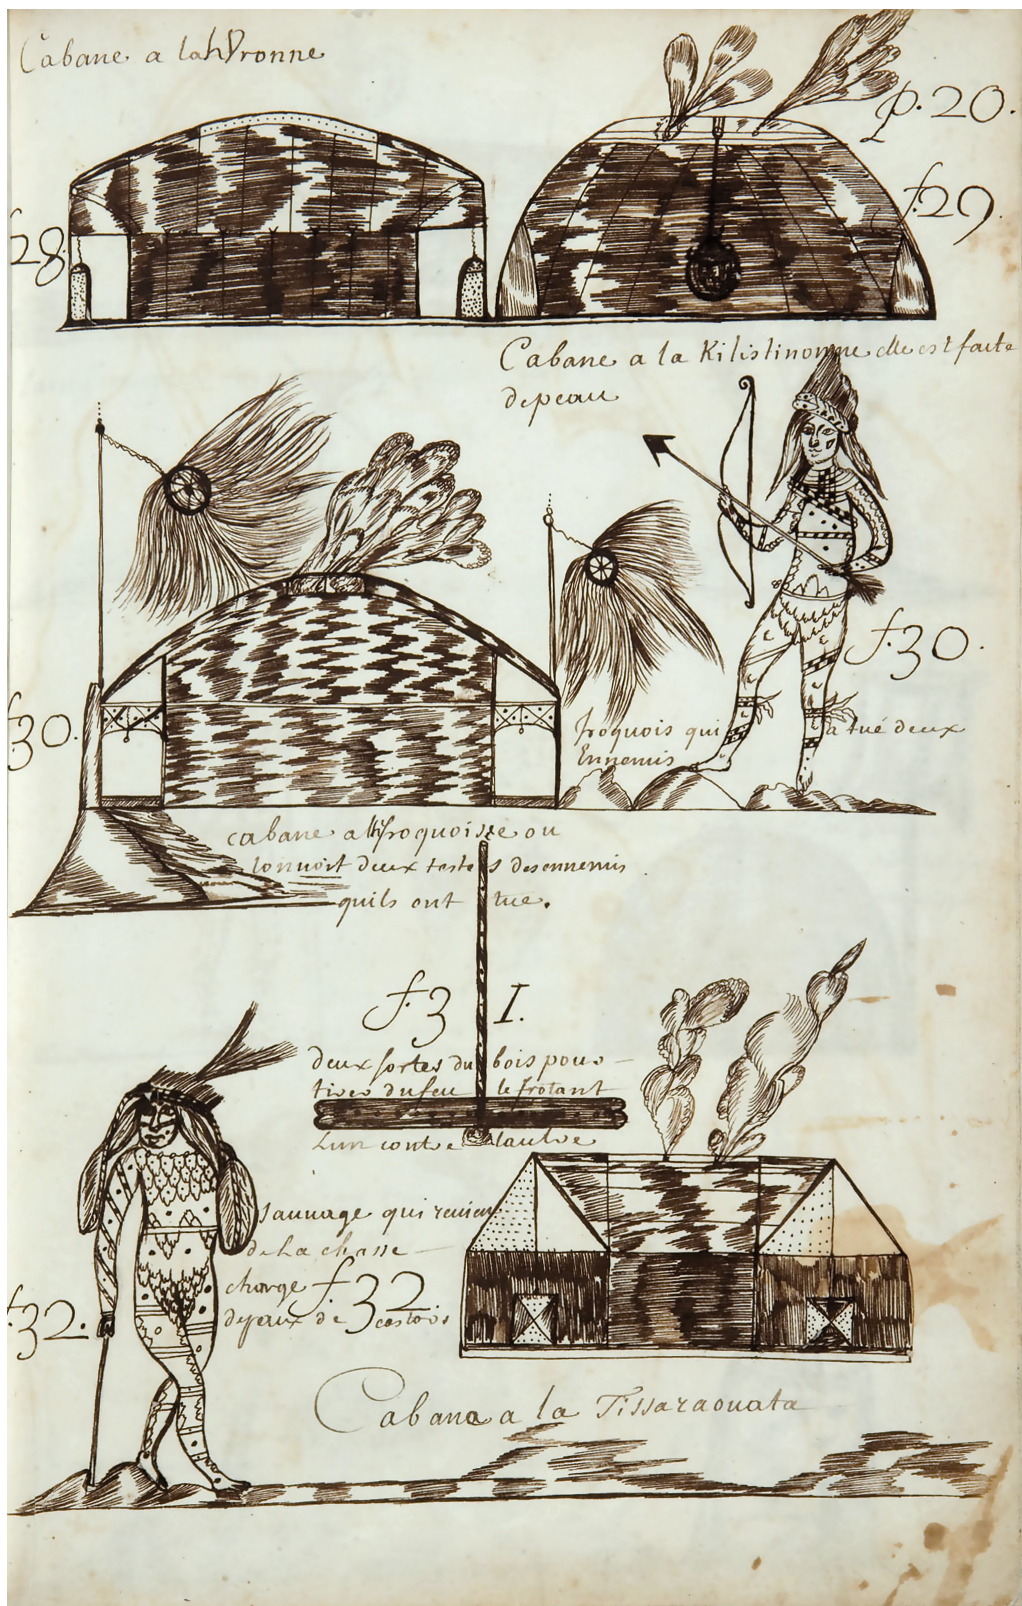 Cabane a la hVronne
p. 20.
f. 28.
f. 29.
Cabane a la Kilistinonne elle est faite
de peau
f. 30.
f. 30.
Iroquois qui a tué deux
Ennemis
cabane a Iroquoisse ou
lon voit deux teste s des ennemis
quils ont tue.
f. 3 I.
deux sortes du bois pour
tirer du feu le frotant
Lun contre lautre
sauuage qui reuien
de La chasse
charge f. 32
de peaux de castors
f. 32.
Cabana a la Tissaraouata